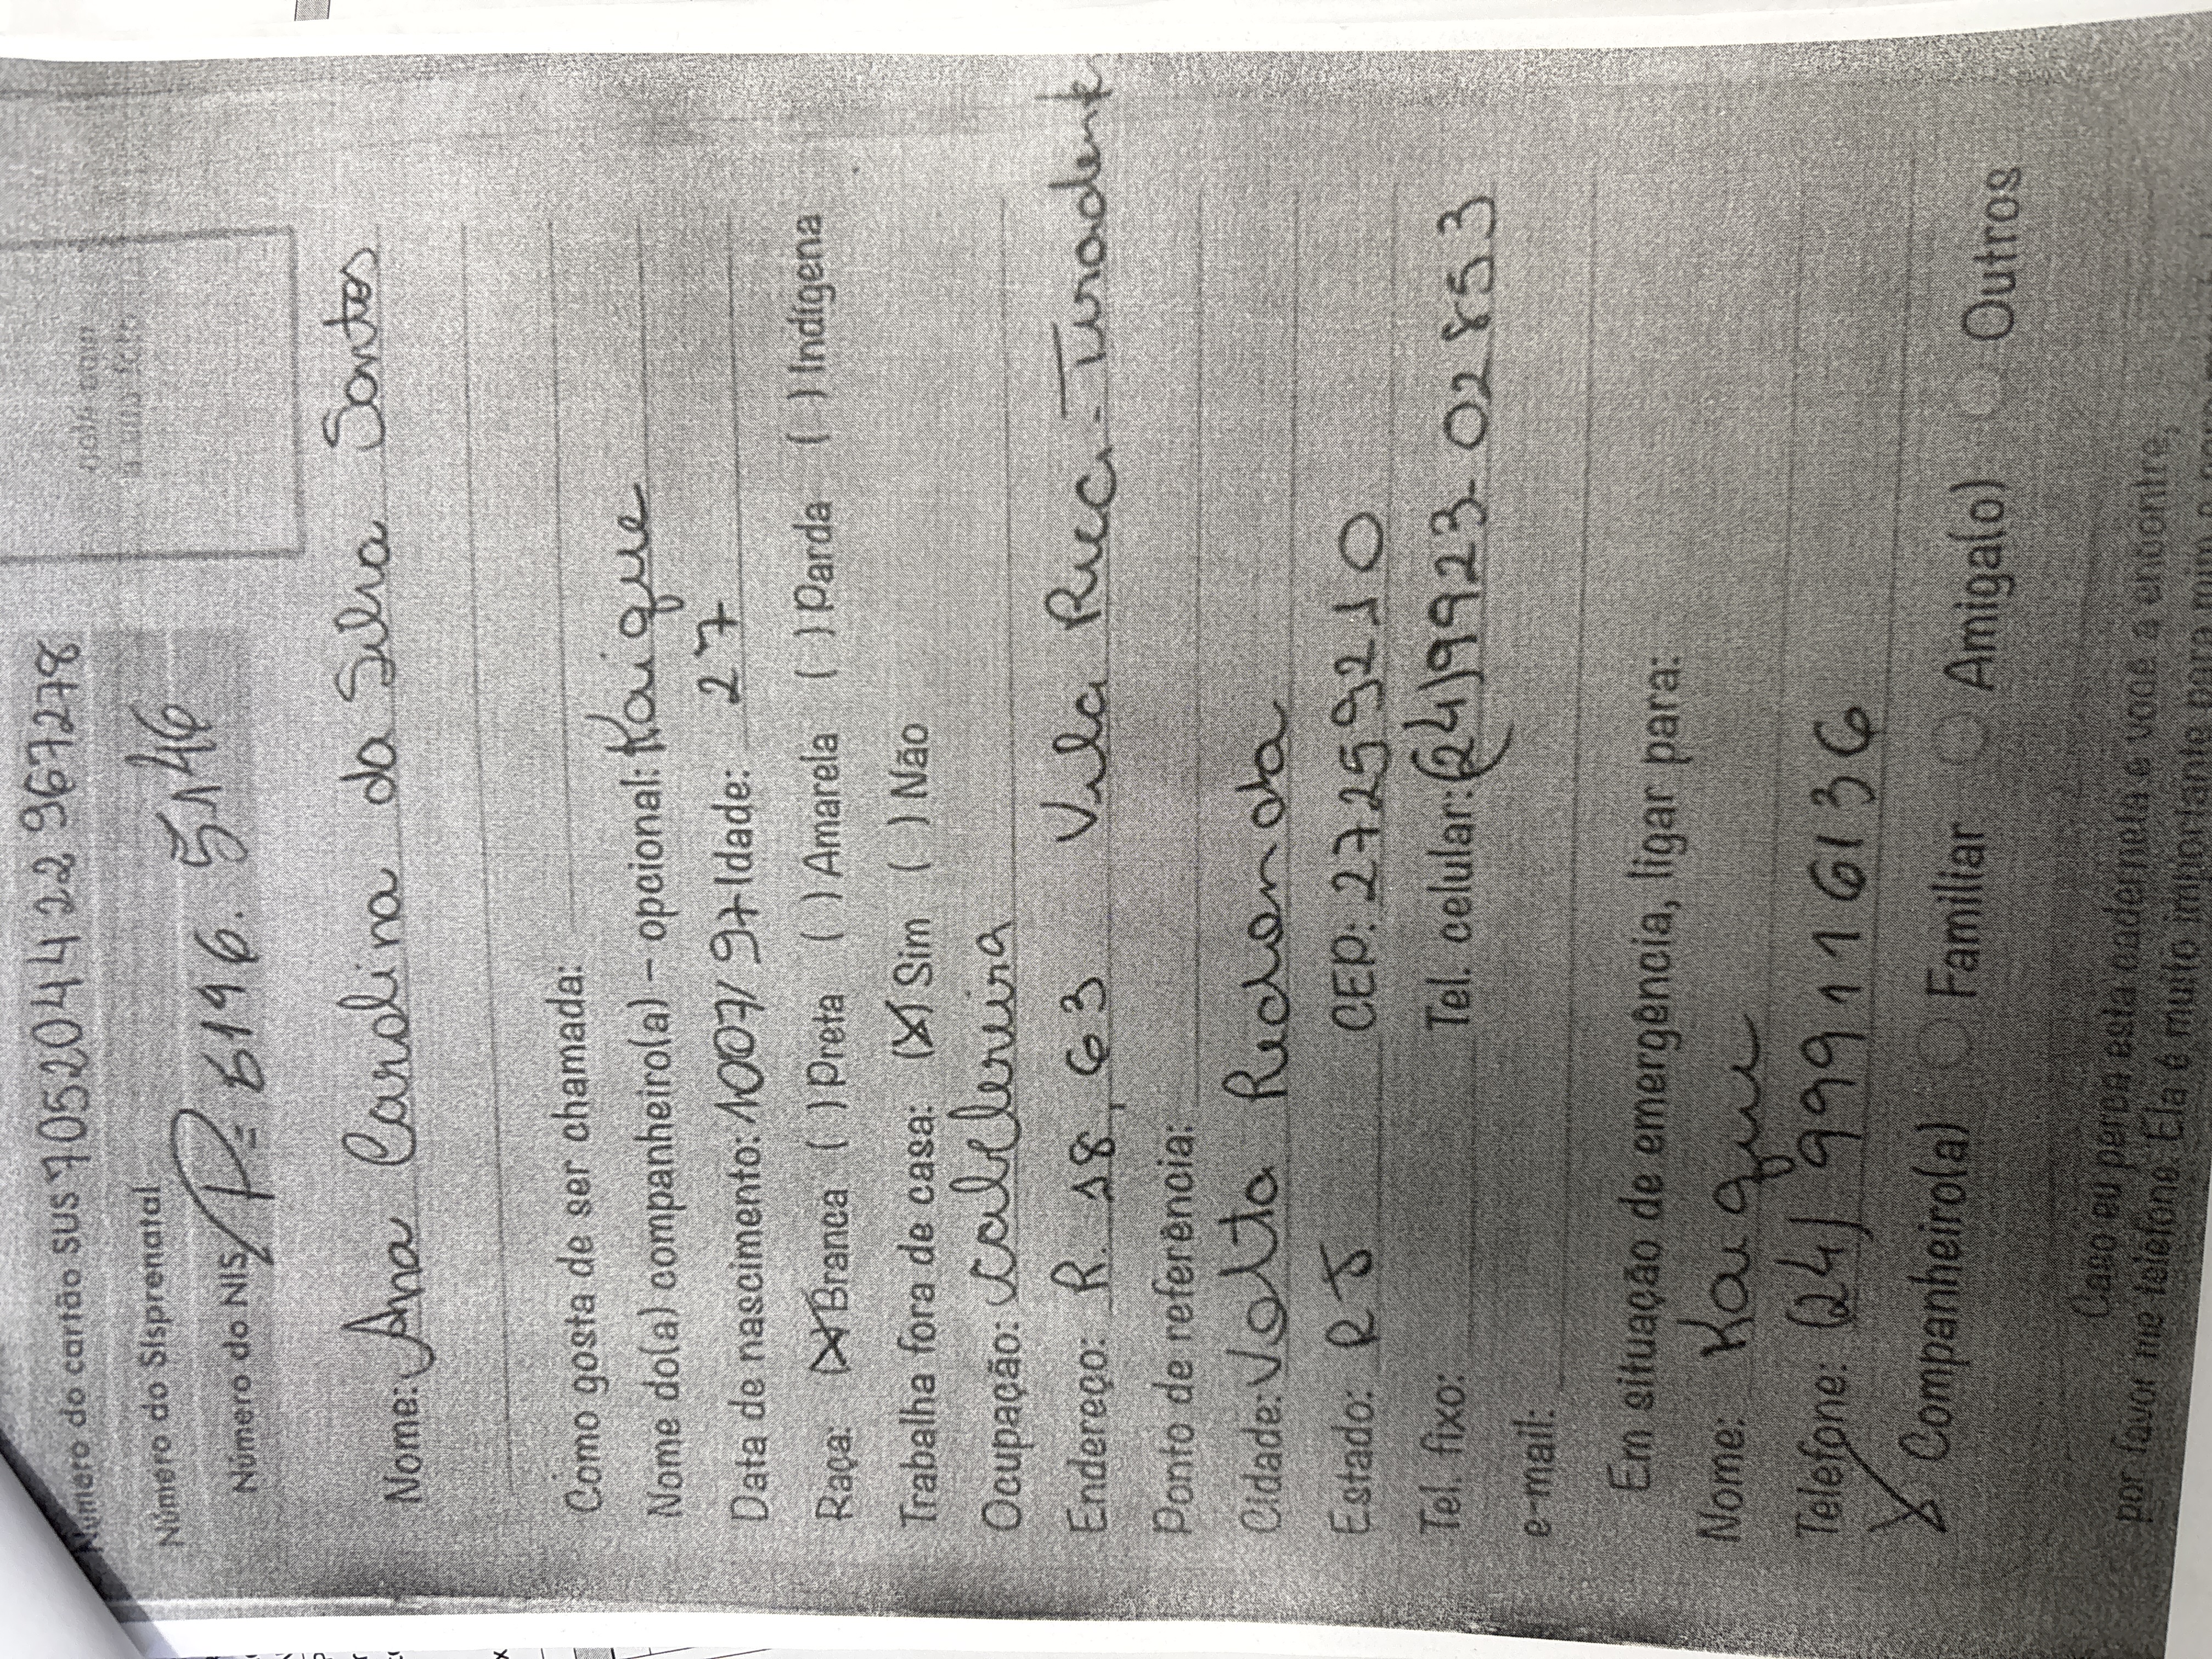 Número do cartão SUS 705204422967278
Número do Sisprenatal
Número do NIS P= 6196. 5146
Nome: Ana Carolina da Silva Santos
Como gosta de ser chamada:
Nome do(a) companheiro(a) – opcional: Kaique
Data de nascimento: 1007/97 Idade: 27
Raça: (X) Branca ( ) Preta ( ) Amarela ( ) Parda ( ) Indígena
Trabalha fora de casa: (X) Sim ( ) Não
Ocupação: cabeleireira
Endereço: R. 18, 63 Vila Rica - Tiradentes
Ponto de referência:
Cidade: Volta Redonda
Estado: RJ CEP: 27259210
Tel. fixo: Tel. celular: (24) 99923-02853
e-mail:
Em situação de emergência, ligar para:
Nome: Kaique
Telefone: (24) 999116136
X Companheiro(a) Familiar Amiga(o) Outros
Caso eu perca esta caderneta e você a encontre,
por favor me telefone. Ela é muito importante para mim